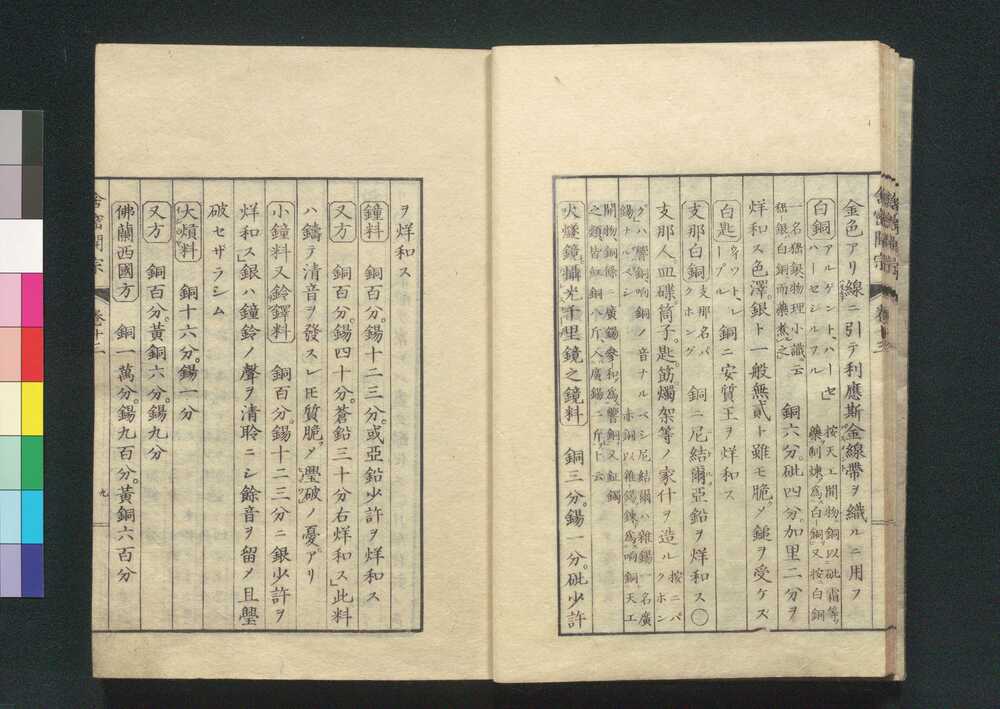 金色アリ線ニ引テ利應斯金線帶ヲ織ルニ用フ
白銅 アルゲント、ハーセシルフル 也 按天工開物、銅以砒霜等藥制煉爲白銅、又按白銅
一名䤵銀、物理小識ニ云䤵銀白銅雨藥煮之 銅六分。砒四分。加里二分ヲ
烊和ス色澤。銀ト一般無貳ト雖モ脆ノ鎚ヲ受ケズ
白匙 ウィット、レープル 銅ニ安質王ヲ烊和ス
支那白銅 支那名パクホング 銅ニ尼結爾亞鉛ヲ烊和ス〇
支那人。皿碟筒子。匙。筯燭架等ノ家什ヲ造ル 按ニパクホン
グハ響銅响銅ノ音ナルベシ尼結爾ハ雜錫一名廣錫ナルベシ 赤銅以雜錫錬爲响銅、天工
開物銅條ニ廣錫參和爲響銅、又鉦鐲之類皆紅銅八斤入廣錫二斤ト云
火燧鏡攝光千里鏡之鏡料 銅三分。錫一分。砒少許
舎密開宗 卷十三
ヲ烊和ス
鐘料 銅百分。錫十二三分。或亞鉛少許ヲ烊和ス
又方 銅百分。錫四十分。蒼鉛三十分右烊和ス」此料
ハ鑄テ清音ヲ發スレ𪜈質脆ノ璺破ノ憂アリ
小鐘料又鈴鐸料 銅百分錫十二三分ニ銀少許ヲ
烊和ス」銀ハ鐘鈴ノ聲ヲ清聆ニシ餘音ヲ留メ且璺
破セザラシム
大熕料 銅十六分。錫一分
又方 銅百分。黃銅六分。錫九分
佛蘭西國方 銅一萬分。錫九百分。黃銅六百分
舎密開宗 卷十三 九